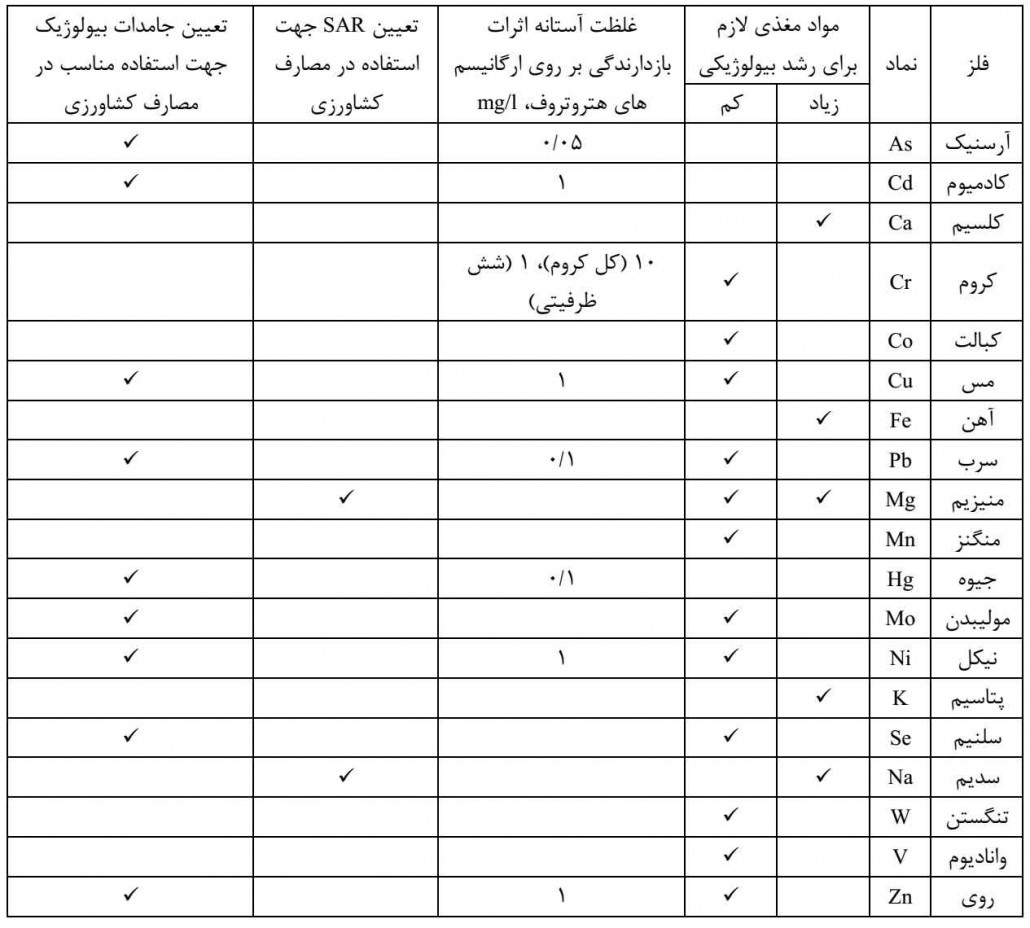 فلز نماد مواد مغذی لازم برای رشد بیولوژیکی غلظت آستانه اثرات بازدارندگی بر روی ارگانیسم های هتروتروف، mg/l تعیین SAR جهت استفاده در مصارف کشاورزی تعیین جامدات بیولوژیک جهت استفاده مناسب در مصارف کشاورزی
زیاد کم
آرسنیک As ۰/۰۵ ✓
کادمیوم Cd ۱ ✓
کلسیم Ca ✓
کروم Cr ✓ ۱۰ (کل کروم)، ۱ (شش ظرفیتی)
کبالت Co ✓
مس Cu ✓ ۱ ✓
آهن Fe ✓
سرب Pb ✓ ۰/۱ ✓
منیزیم Mg ✓ ✓ ✓
منگنز Mn ✓
جیوه Hg ۰/۱ ✓
مولیبدن Mo ✓ ✓
نیکل Ni ✓ ۱ ✓
پتاسیم K ✓
سلنیم Se ✓ ✓
سدیم Na ✓ ✓
تنگستن W ✓
وانادیوم V ✓
روی Zn ✓ ۱ ✓